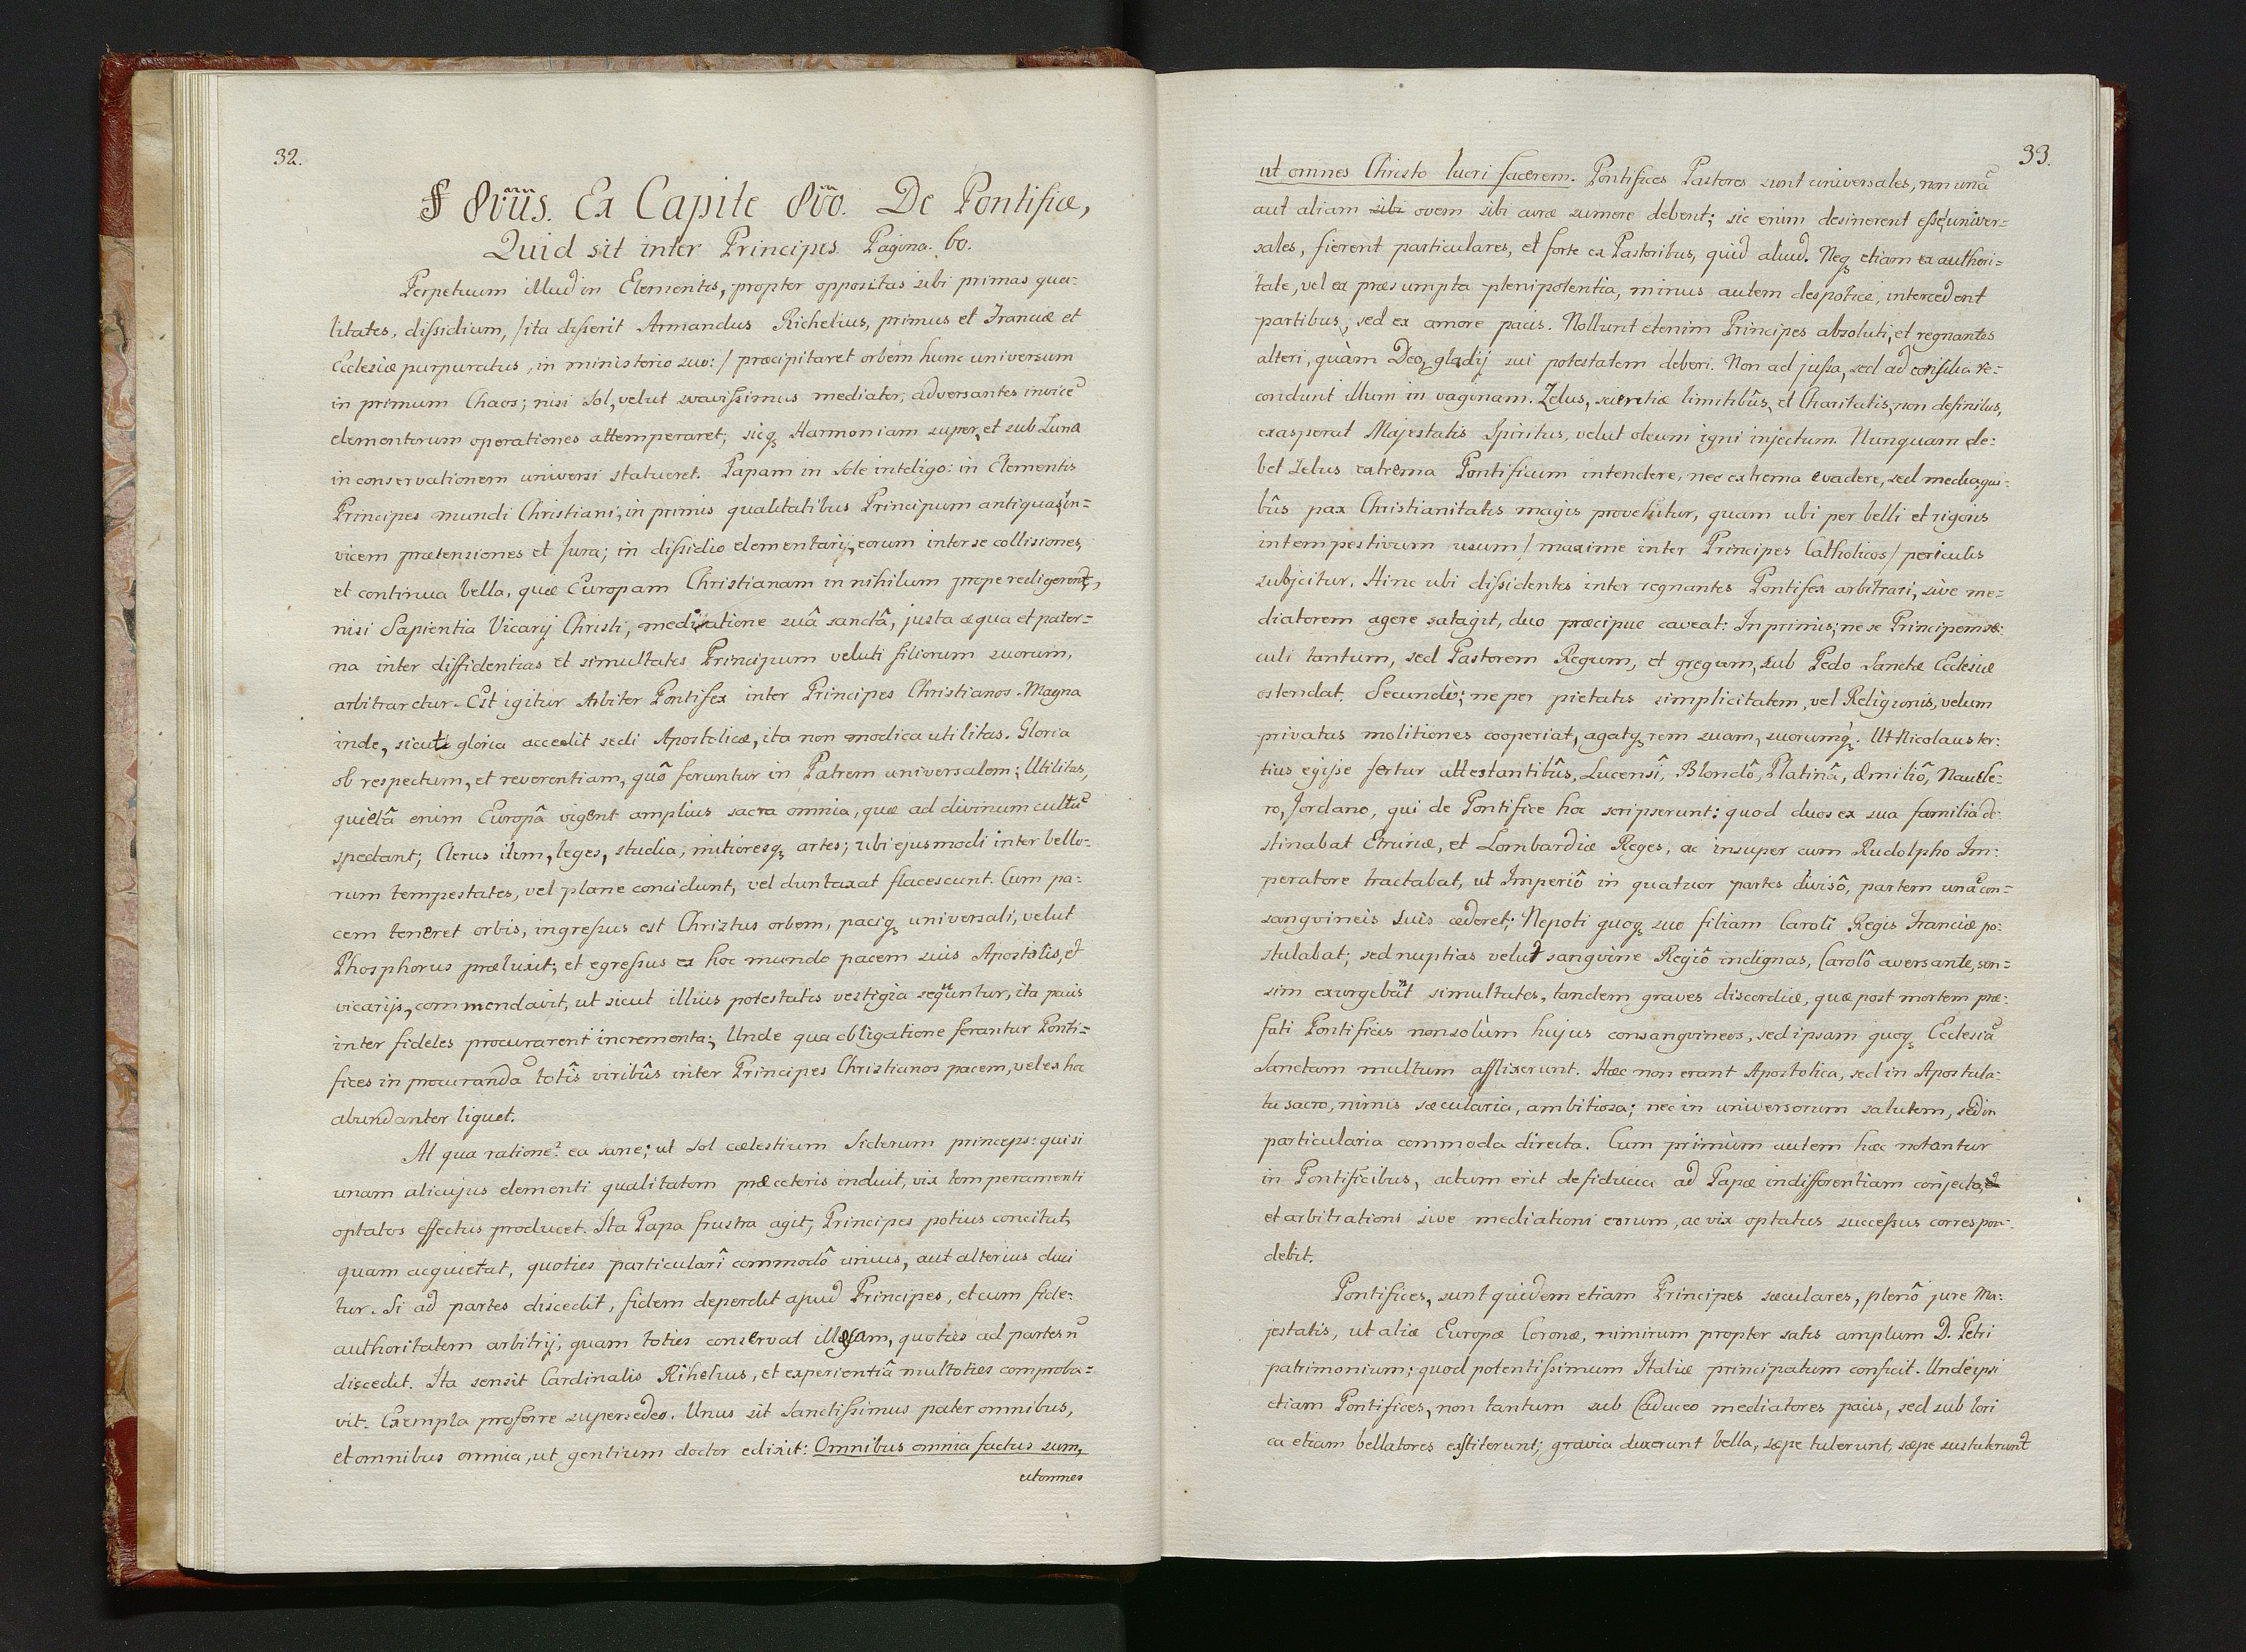 32.
§ 8vus. Ex Capite 8vo. De Pontifice,
Quid sit inter Principes. Pagina. 60.
Perpetuum illud in Elementis, propter oppositas sibi primas qua=
litates, dissidium, /ita disserit Armandus Richelius, primus et Franciæ et
Ecclesiæ purpuratus, in ministerio suo:/ præcipitaret orbem hunc universum
in primum Chaos; nisi Sol, velut suavissimus mediator, adversantes invicē
elementorum operationes attemperaret; sicq̨ Harmoniam super, et sub Luna
in conservationem universi statueret. Papam in Sole intelligo: in Elementis
Principes mundi Christiani, in primis qualitatibus Principum antiquas in=
vicem prætensiones et Jura; in dissidio elementarij, eorum inter se collisiones,
et continua bella, quæ Europam Christianam in nihilum prope redigerent,
nisi Sapientia Vicarij Christi, mediatione suâ sanctâ, justa æqua et pater=
na inter diffidentias et simultates Principum veluti filiorum suorum,
arbitraretur. Est igitur Arbiter Pontifex inter Principes Christianos. Magna
inde, sicuti gloria accedit sedi Apostolicæ, ita non modica utilitas. Gloria
ob respectum, et reverentiam, quô feruntur in Patrem universalem; Utilitas,
quietâ enim Europâ vigent amplius sacra omnia, quæ ad divinum cultū
spectant; Clerus item, leges, studia, mitioresq̨ artes; ubi ejusmodi inter bello=
rum tempestates, vel plane concidunt, vel duntaxat flacescunt. Cum pa=
cem teneret orbis, ingressus est Christus orbem, paciq̨ universali, velut
Phosphorus præluxit; et egressus ex hoc mundo pacem suis Apostolis, et
vicarijs, commendavit, ut sicut illius potestatis vestigia sequuntur, ita pacis
inter fideles procurarent incrementa; Unde qua obligatione ferantur Ponti=
fices in procurandā totîs viribûs inter Principes Christianos pacem, vel ex hoc
abundanter liquet.
At qua ratione? ea sane; ut Sol cælestium Siderum princeps: qui si
unam alicujus elementi qualitatem præ ceteris induit, vix temperamenti
optatos effectus producet. Ita Papa frustra agit, Principes potius concitat,
quam acquietat, quoties particularî commodô unius, aut alterius duci
tur. Si ad partes discedit, fidem deperdit apud Principes, et cum fide=
authoritatem arbitrij; quam toties conservat illæsam, quoties ad partes nō
discedit. Ita sensit Cardinalis Rihelius, et experientiâ multoties comproba=
vit. Exempla proferre supersedeo. Unus sit Sanctissimus pater omnibus,
et omnibus omnia, ut gentium doctor edixit: Omnibus omnia factus sum,
ut omnes
33.
ut omnes Christo lucri facerem. Pontifices Pastores sunt universales, non unā
aut aliam sibi ovem sibi curæ sumere debent; sic enim desinerent esse univer=
sales, fierent particulares, et forte ex Pastoribus, quid aliud. Neq̨ etiam ex authori=
tate, vel ex præsumpta plenipotentia, minus autem despotice, intercedent
partibus, sed ex amore pacis. Nollunt etenim Principes absoluti, et regnantes
alteri, quàm Deo, gladij sui potestatem deberi. Non ad jussa, sed ad consilia re=
condunt illum in vaginam. Zelus, scientiæ limitibûs, et Charitatis, non definitus,
exasperat Majestatis Spiritus, velut oleum igni injectum. Nunquam de=
bet Zelus extrema Pontificum intendere, nec extrema evadere, sed media qui=
bûs pax Christianitatis magis provehitur, quam ubi per belli et rigoris
intempestivum usum /maxime inter Principes Catholicos/ periculis
subjicitur. Hinc ubi dissidentes inter regnantes Pontifex arbitrari, sive me=
diatorem agere satagit, duo præcipue caveat: In primis; ne se Principem sæ=
culi tantum, sed Pastorem Regum, et gregum, sub Pedo Sanctæ Ecclesiæ
ostendat. Secundò; ne per pietatis simplicitatem, vel Religionis, velum
privatas molitiones cooperiat, agatq̨ rem suam, suorumq̨. Ut Nicolaus ter=
tius egisse fertur attestantibûs, Lucensî, Blondô, Platinâ, Æmiliô, Naucle=
ro, Jordano, qui de Pontifice hoc scripserunt: quod duos ex sua familia de=
stinabat Etruriæ, et Lombardiæ Reges, ac insuper cum Rudolpho Im=
peratore tractabat, ut Imperiô in quatuor partes divisô, partem unā con=
sangvineis suis cederet; Nepoti quoq̨ suo filiam Caroli Regis Franciæ po=
stulabat; sed nuptias velut sangvine Regiô indignas, Carolô aversante, sen=
sim exurgebant simultates, tandem graves discordiæ, quæ post mortem præ=
fati Pontificis non solùm hujus consangvineos, sed ipsam quoq̨ Ecclesiā
Sanctam multum afflixerunt. Hæc non erant Apostolica, sed in Apostola=
tu sacro, nimis sæcularia, ambitiosa; nec in universorum salutem, sed in
particularia commoda directa. Cum primùm autem hæc notantur
in Pontificibus, actum erit de fiducia ad Papæ indifferentiam conjecta, et
et arbitrationi sive mediationi eorum, ac vix optatus successus correspon=
debit.
Pontifices, sunt quidem etiam Principes sæculares, plenô jure Ma=
jestatis, ut aliæ Europæ Coronæ, nimirum propter satis amplum D. Petri
patrimonium; quod potentissimum Italiæ principatum conficit. Unde ipsi
etiam Pontifices, non tantum sub Caduceo mediatores pacis, sed sub lori
ca etiam bellatores exstiterunt; gravia duxerunt bella, sæpe tulerunt, sæpe sustulerunt